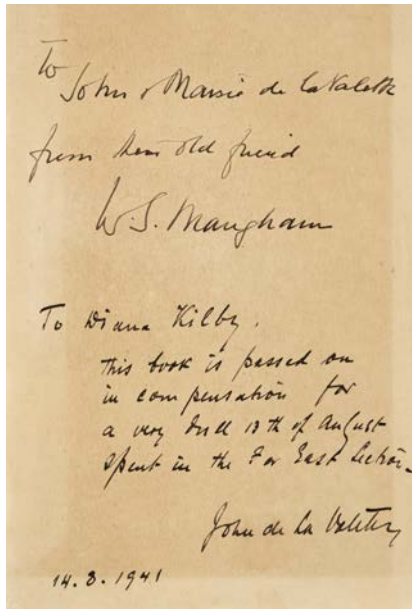 To
John & Maisie de la Valette
from their old friend
W. S. Maugham
To Diana Kilby.
this book is passed on
in compensation for
a very dull 13th of August
spent in the Far East Section.
John de la Valette
14.8.1941